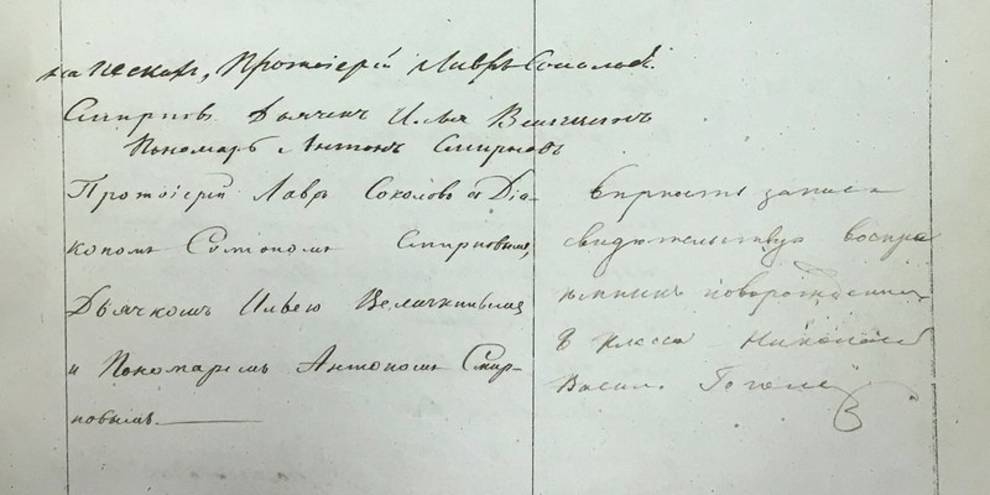 на Пескахъ, Протоіерей Лавръ Соколовъ.
Смирновъ Дьячекъ Илья
Пономарь Антонъ Смирновъ
Протоіерей Лавръ Соколовъ съ Діа-
кономъ Смирновымъ,
Дьячкомъ Ильею
и Пономаремъ Антономъ Смир-
новымъ.
Верность записи
свидѣтельствую воспрі
емникъ новорожденна
8 класса Николай
Васил. Гоголь